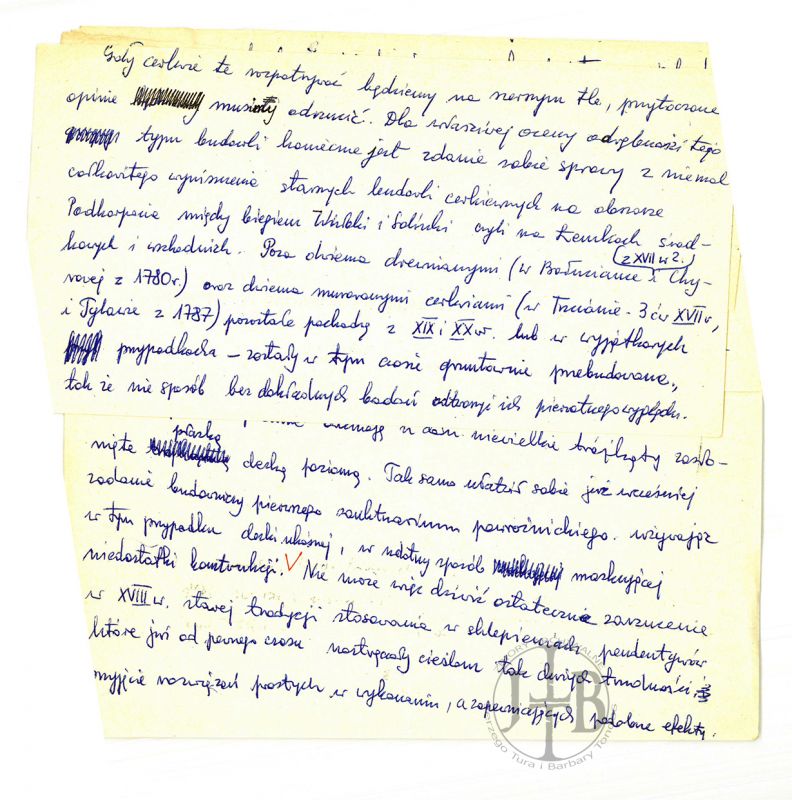 Gdy cerkwie te rozpatrywać będziemy na szerszym tle, przytoczone
opinie musiały odrzucić. Dla właściwej oceny odrębności tego
typu budowli konieczne jest zdanie sobie sprawy z niemal
całkowitego wyniszczenia starszych budowli cerkiewnych na obszarze
Podkarpacia między biegiem Wisłoki i Solinki czyli na Łemkach środ-
kowych i wschodnich. Poza dwiema drewnianymi (w Bałuciance (z XVII w?.) i Chy-
rowej z 1780r.) oraz dwiema murowanymi cerkwiami (w Trzcianie - 3 ćw XVIII w,
i Tylawie z 1787) pozostałe pochodzą z XIX i XX w. lub w wyjątkowych
przypadkach – zostały w tym czasie gruntownie przebudowane,
tak że nie sposób bez dokładnych badań odtworzyć ich pierwotnego wyglądu.
w dom. niewielkie trójkąty zasło-
nięte prostą deską poziomą. Tak samo ułatwił sobie już wcześniej
zadanie budowniczy pierwszego sanktuarium powroźnickiego. używając
w tym przypadku deski ukośnej, w istotny sposób maskującej
niedostatki konstrukcji. V Nie może więc dziwić ostateczne zarzucenie
w XVIII w. starej tradycji stosowania w sklepieniach pendentywów
które już od pewnego czasu nastręczały cieślom tak dużych trudności,
myjcie rozwiązań prostych w wykonaniu, a zapewniających podobne efekty.
J T B
Jerzego Tura i Barbary